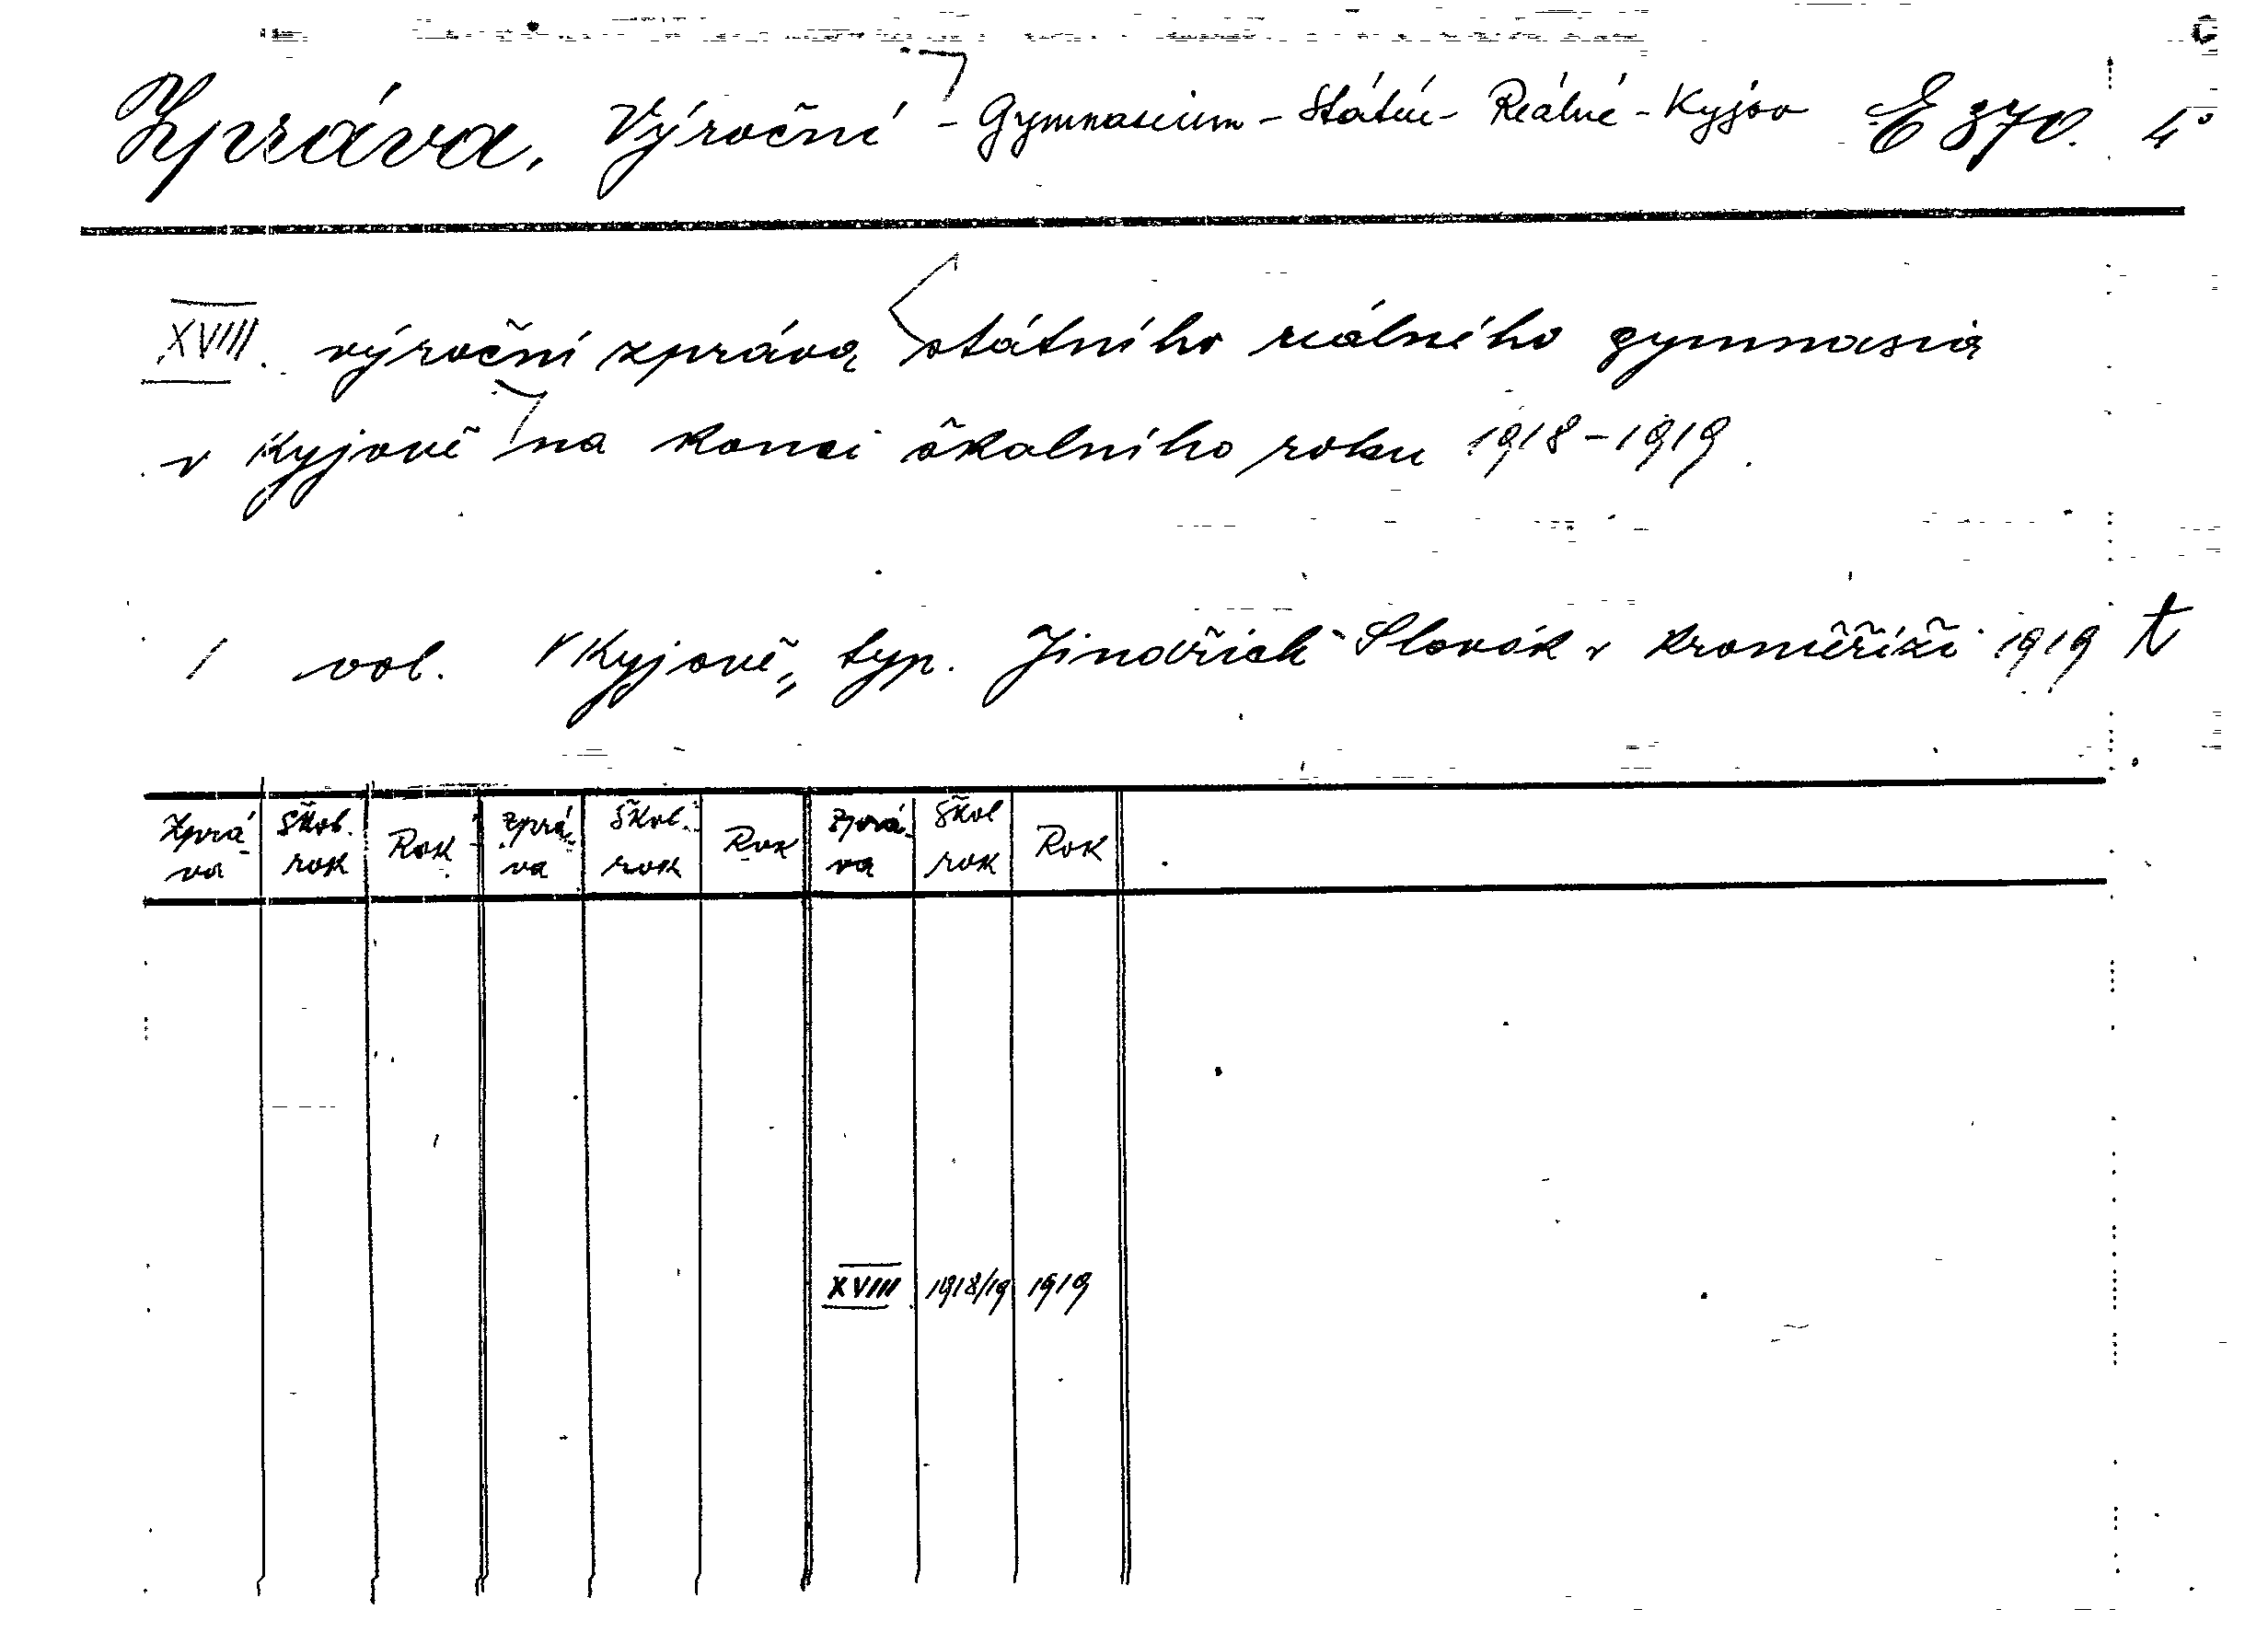 Zpráva, Výroční - Gymnasium - Státní - Reálné - Kyjov E 370. 4°
XVIII. výroční zpráva státního reálného gymnasia
v Kyjově na konci školního roku 1918-1919.
1 vol. V Kyjově, typ. Jindřich Slovák v Kroměříži 1919 t
Zprá-va Škol. rok Rok Zprá-va Škol. rok Rok Zprá-va Škol rok Rok
XVIII 1918/19 1919